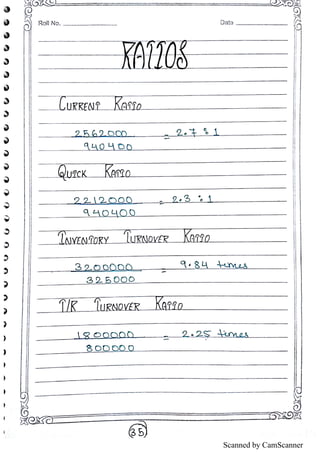 Roll No. Date
RATIOS
CURRENT RATIO
2562000 = 2.7 : 1
940400
QUICK RATIO
2212000 = 2.3 : 1
940400
INVENTORY TURNOVER RATIO
3200000 = 9.84 times
325000
T/R TURNOVER RATIO
1800000 = 2.25 times
800000
35
Scanned by CamScanner